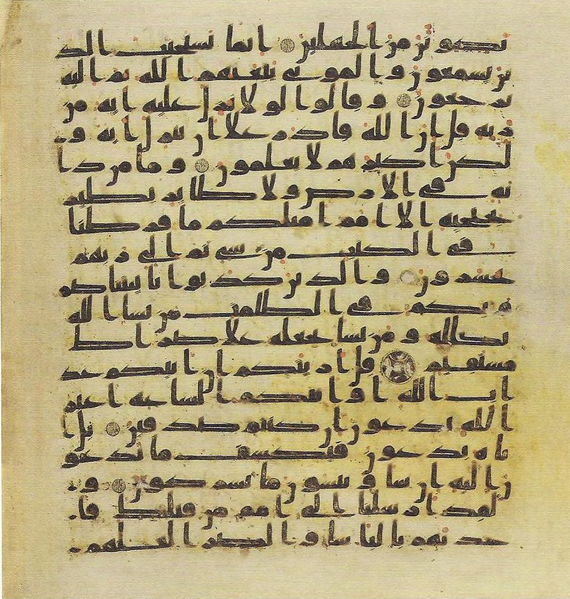 تكونن من الجهلين انما يستجيب الذ
ين يسمعون والموتى يبعثهم الله ثم اليه
يرجعون وقالوا لولا نزل عليه ايه من
ربه قل ان الله قادر علا ان ينزل ايه و
لكن اكثرهم لا يعلمون وما من دا
به في الارض ولا طاير يطير
بجنحيه الا امم امثلكم ما فرطنا
في الكتب من شي ثم الى ربهم
يحشرون والذين كذبوا بايتنا صم
وبكم في الظلمت من يشا الله
يضلله ومن يشا يجعله علا صراط
مستقيم قل اريتكم ان اتيكم عذ
اب الله او اتتكم الساعه اغير
الله تدعون ان كنتم صدقين بل ا
ياه تدعون فيكشف ما تدعو
ن اليه ان شا وتنسون ما تشركون و
لقد ارسلنا الى امم من قبلك فا
خذنهم بالباسا والضرا لعلهم